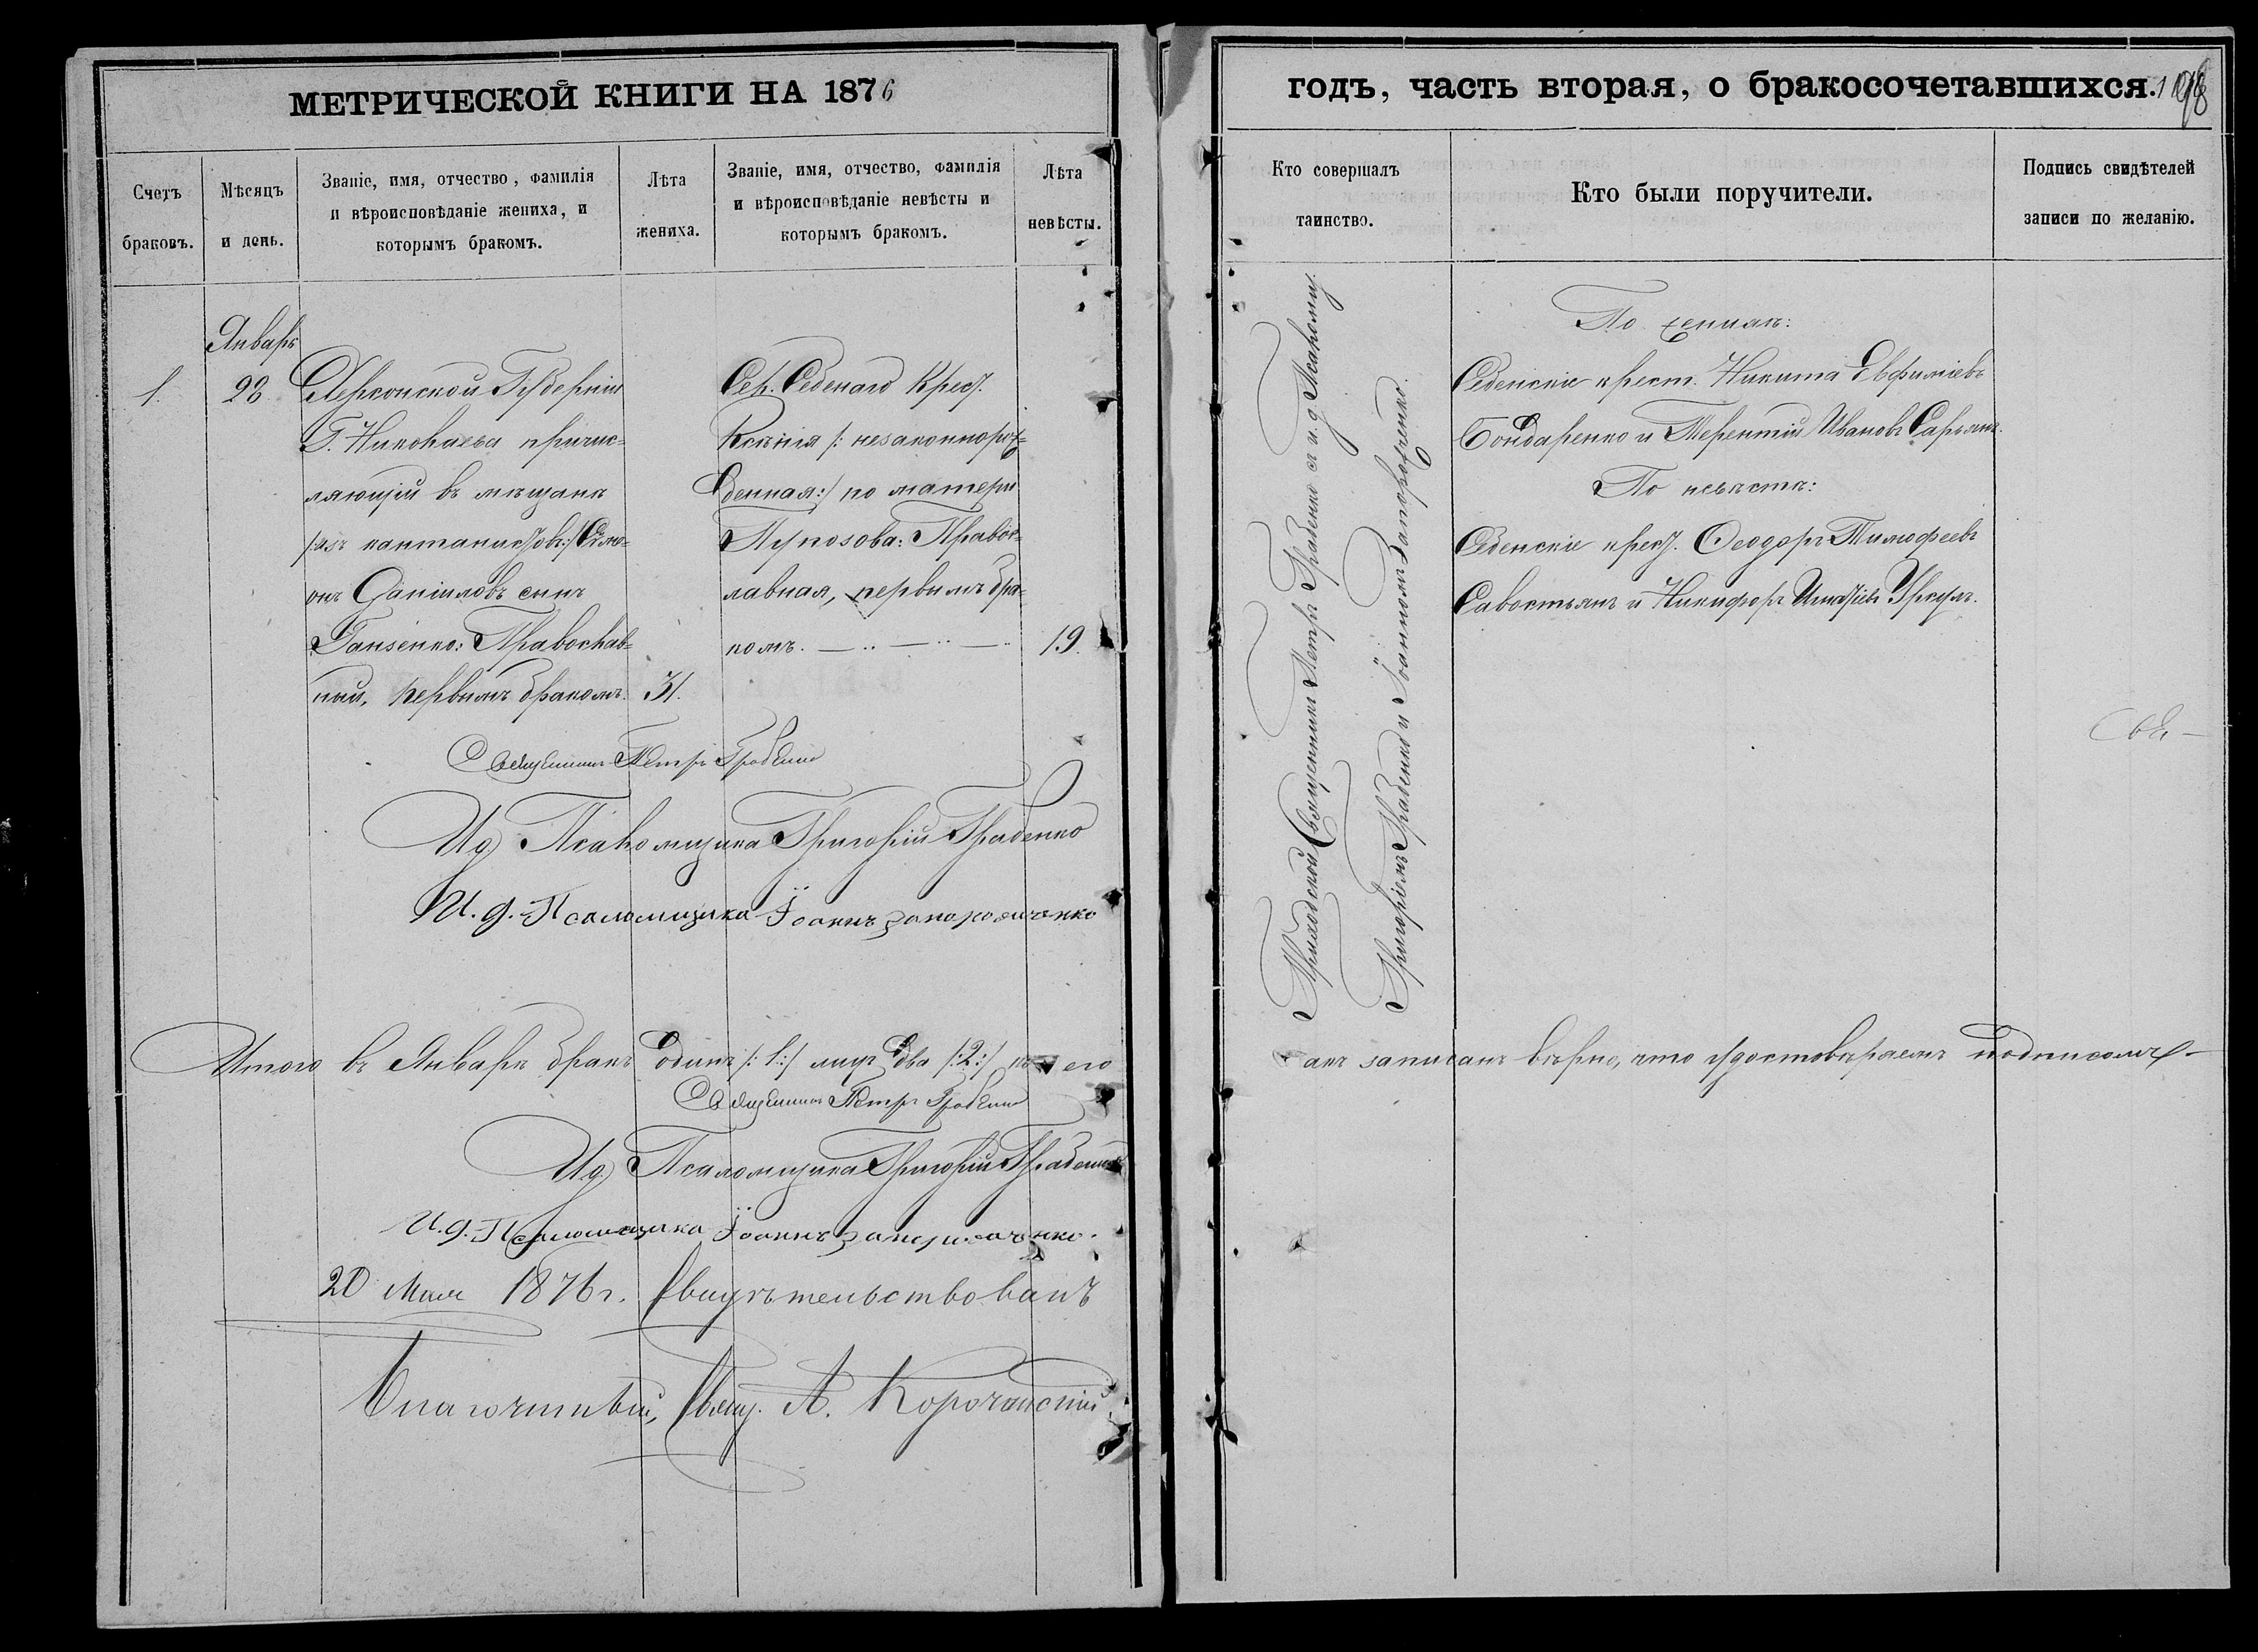 МЕТРИЧЕСКОЙ КНИГИ НА 1876
Счетъ браковъ.
Мѣсяцъ и день.
Званіе, имя, отчество, фамилія
и вѣроисповѣданіе жениха, и
которымъ бракомъ.
Лѣта жениха.
Званіе, имя, отчество, фамилія
и вѣроисповѣданіе невѣсты и
которымъ бракомъ.
Лѣта невѣсты.
1.
Январь
28
Херсонской Губерніи
Г. Николаева причис-
ляющій въ мѣщане
/:изъ кантонистовъ:/ Симе-
онъ Даніиловъ сынъ
Ганзенко: Православ-
ный, первымъ бракомъ.
31.
Сел. Седенаго Крест.
Ксенія /: незаконнорож-
денная:/ по матери
Правос-
лавная, первымъ бра-
комъ.
19.
Священникъ Петръ Грабенко
И д Псаломщика Григорій Грабенко
И. д. Псаломщика Іоаннъ Запорожченко
Итого въ Январѣ бракъ одинъ /:1:/ лицъ два /:2:/ его
Священникъ Петръ Грабенко
И д Псаломщика Григорій Грабенко
И. д. Псаломщика Іоаннъ Запорожченко.
20 Мая 1876 г. Свидѣтельствовалъ
Благочинный, Свящ. А. Корочанскій
годъ, часть вторая, о бракосочетавшихся.
Кто совершалъ
таинство.
Кто были поручители.
Подпись свидѣтелей
записи по желанію.
Приходской Священникъ Петръ Грабенко съ и. д. Псаломщ.
Григоріемъ Грабенко и Іоанномъ Запорожченко.
По женихѣ:
Седенскіе крест. Никита Евфиміевъ
Бондаренко и Терентій Ивановъ
По невѣстѣ:
Седенскіе крест. Ѳеодоръ Тимофеевъ
Савостьянъ и Никифоръ Игнатіевъ Уркумъ.
актъ записанъ вѣрно, что удостовѣряемъ подписомъ